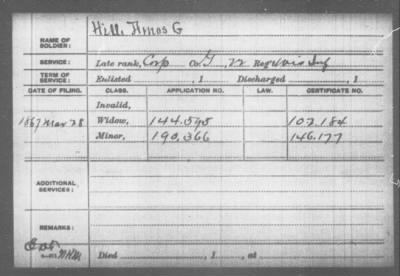 Hill, Amos G
NAME OF SOLDIER:
SERVICE: Late rank, Corp Co. G, 22 Reg't Wis Inf
TERM OF SERVICE: Enlisted , 1 Discharged , 1
DATE OF FILING. CLASS. APPLICATION NO. LAW. CERTIFICATE NO.
Invalid,
1867 Mar 28 Widow, 144.595 107.184
Minor, 190.366 146.177
ADDITIONAL SERVICES:
REMARKS:
Died , 1 , at